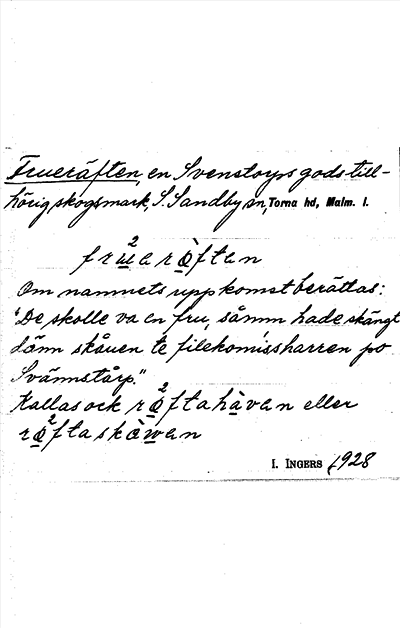 Frueräften, en Svenstorps gods till-
hörig skogsmark, S. Sandby sn, Torna hd, Malm. l.
fru²a rö̀ftan
Om namnets uppkomst berättas:
"De skolle va en fru, sånm hade skängt
dänn skåuen te filekomissharren po
Svännstårp."
Kallas ock rö²ftahàvan eller
rö²ftaskòwan
I. INGERS 1928